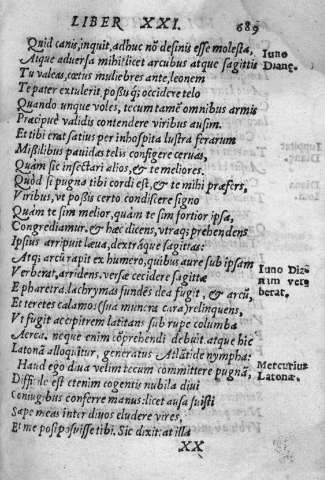 LIBER XXI. 689
Quid canis, inquit, adhuc nõ desinis esse molesta,
Atque aduersa mihi: licet arcubus atque sagittis
Iuno
Dianę.
Tu valeas, cœtus muliebres ante, leonem
Te pater extulerit, possisq́; occidere telo
Quando unque voles, tecum tamẽ omnibus armis
Præcipuè validis contendere viribus ausim.
Et tibi erat satius per inhospita lustra ferarum
Missilibus pauidas telis configere ceruas,
Quàm sic insectari alios, & te meliores.
Quòd si pugna tibi cordi est, & te mihi præfers,
Viribus, vt possis certo condiscere signo
Quàm te sim melior, quàm te sim fortior ipsa,
Congrediamur. & hæc dicens, vtrasq; prehendens
Ipsius arripuit læua, dextráque sagittas:
Atq; arcũ rapit ex humero, quibus aure sub ipsam
Verberat, arridens. versæ cecidere sagittæ
Iuno Dia-
nam ver-
berat.
E pharetra: lachrymas fundẽs dea fugit, & arcũ,
Et teretes calamos (sua munera cara) relinquens,
Vt fugit accipitrem latitans sub rupe columba
Aerea. neque enim cõprehendi debuit. atque hic
Latonã alloquitur, generatus Atlãtide nympha:
Haud ego diua velim tecum committere pugnã,
Mercurius
Latonæ.
Difficile est etenim cogentis nubila diui
Coniugibus conferre manus: licet ausa fuisti
Sæpe meas inter diuos eludere vires,
Et me posposuisse tibi. Sic dixit: at illa
XX